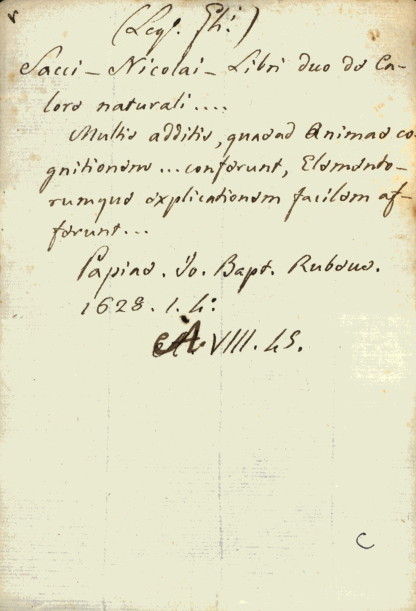 (Leg. Gh:)
Sacci - Nicolai - Libri duo de Ca-
lore naturali....
Multis additis, quae ad Animae co-
gnitionem... conferunt, Elemento-
rumque explicationem facilem af-
ferunt...
Papiae. Jo. Bapt. Rubeus.
1628. 1. 4:
VIII. 45.
C